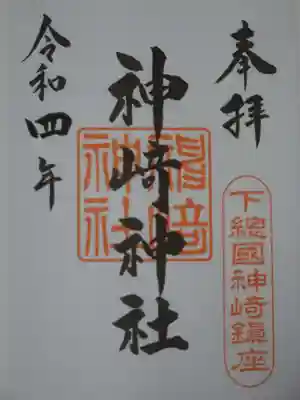 奉拝
下總國神崎鎮座
神崎神社
神崎神社
令和四年